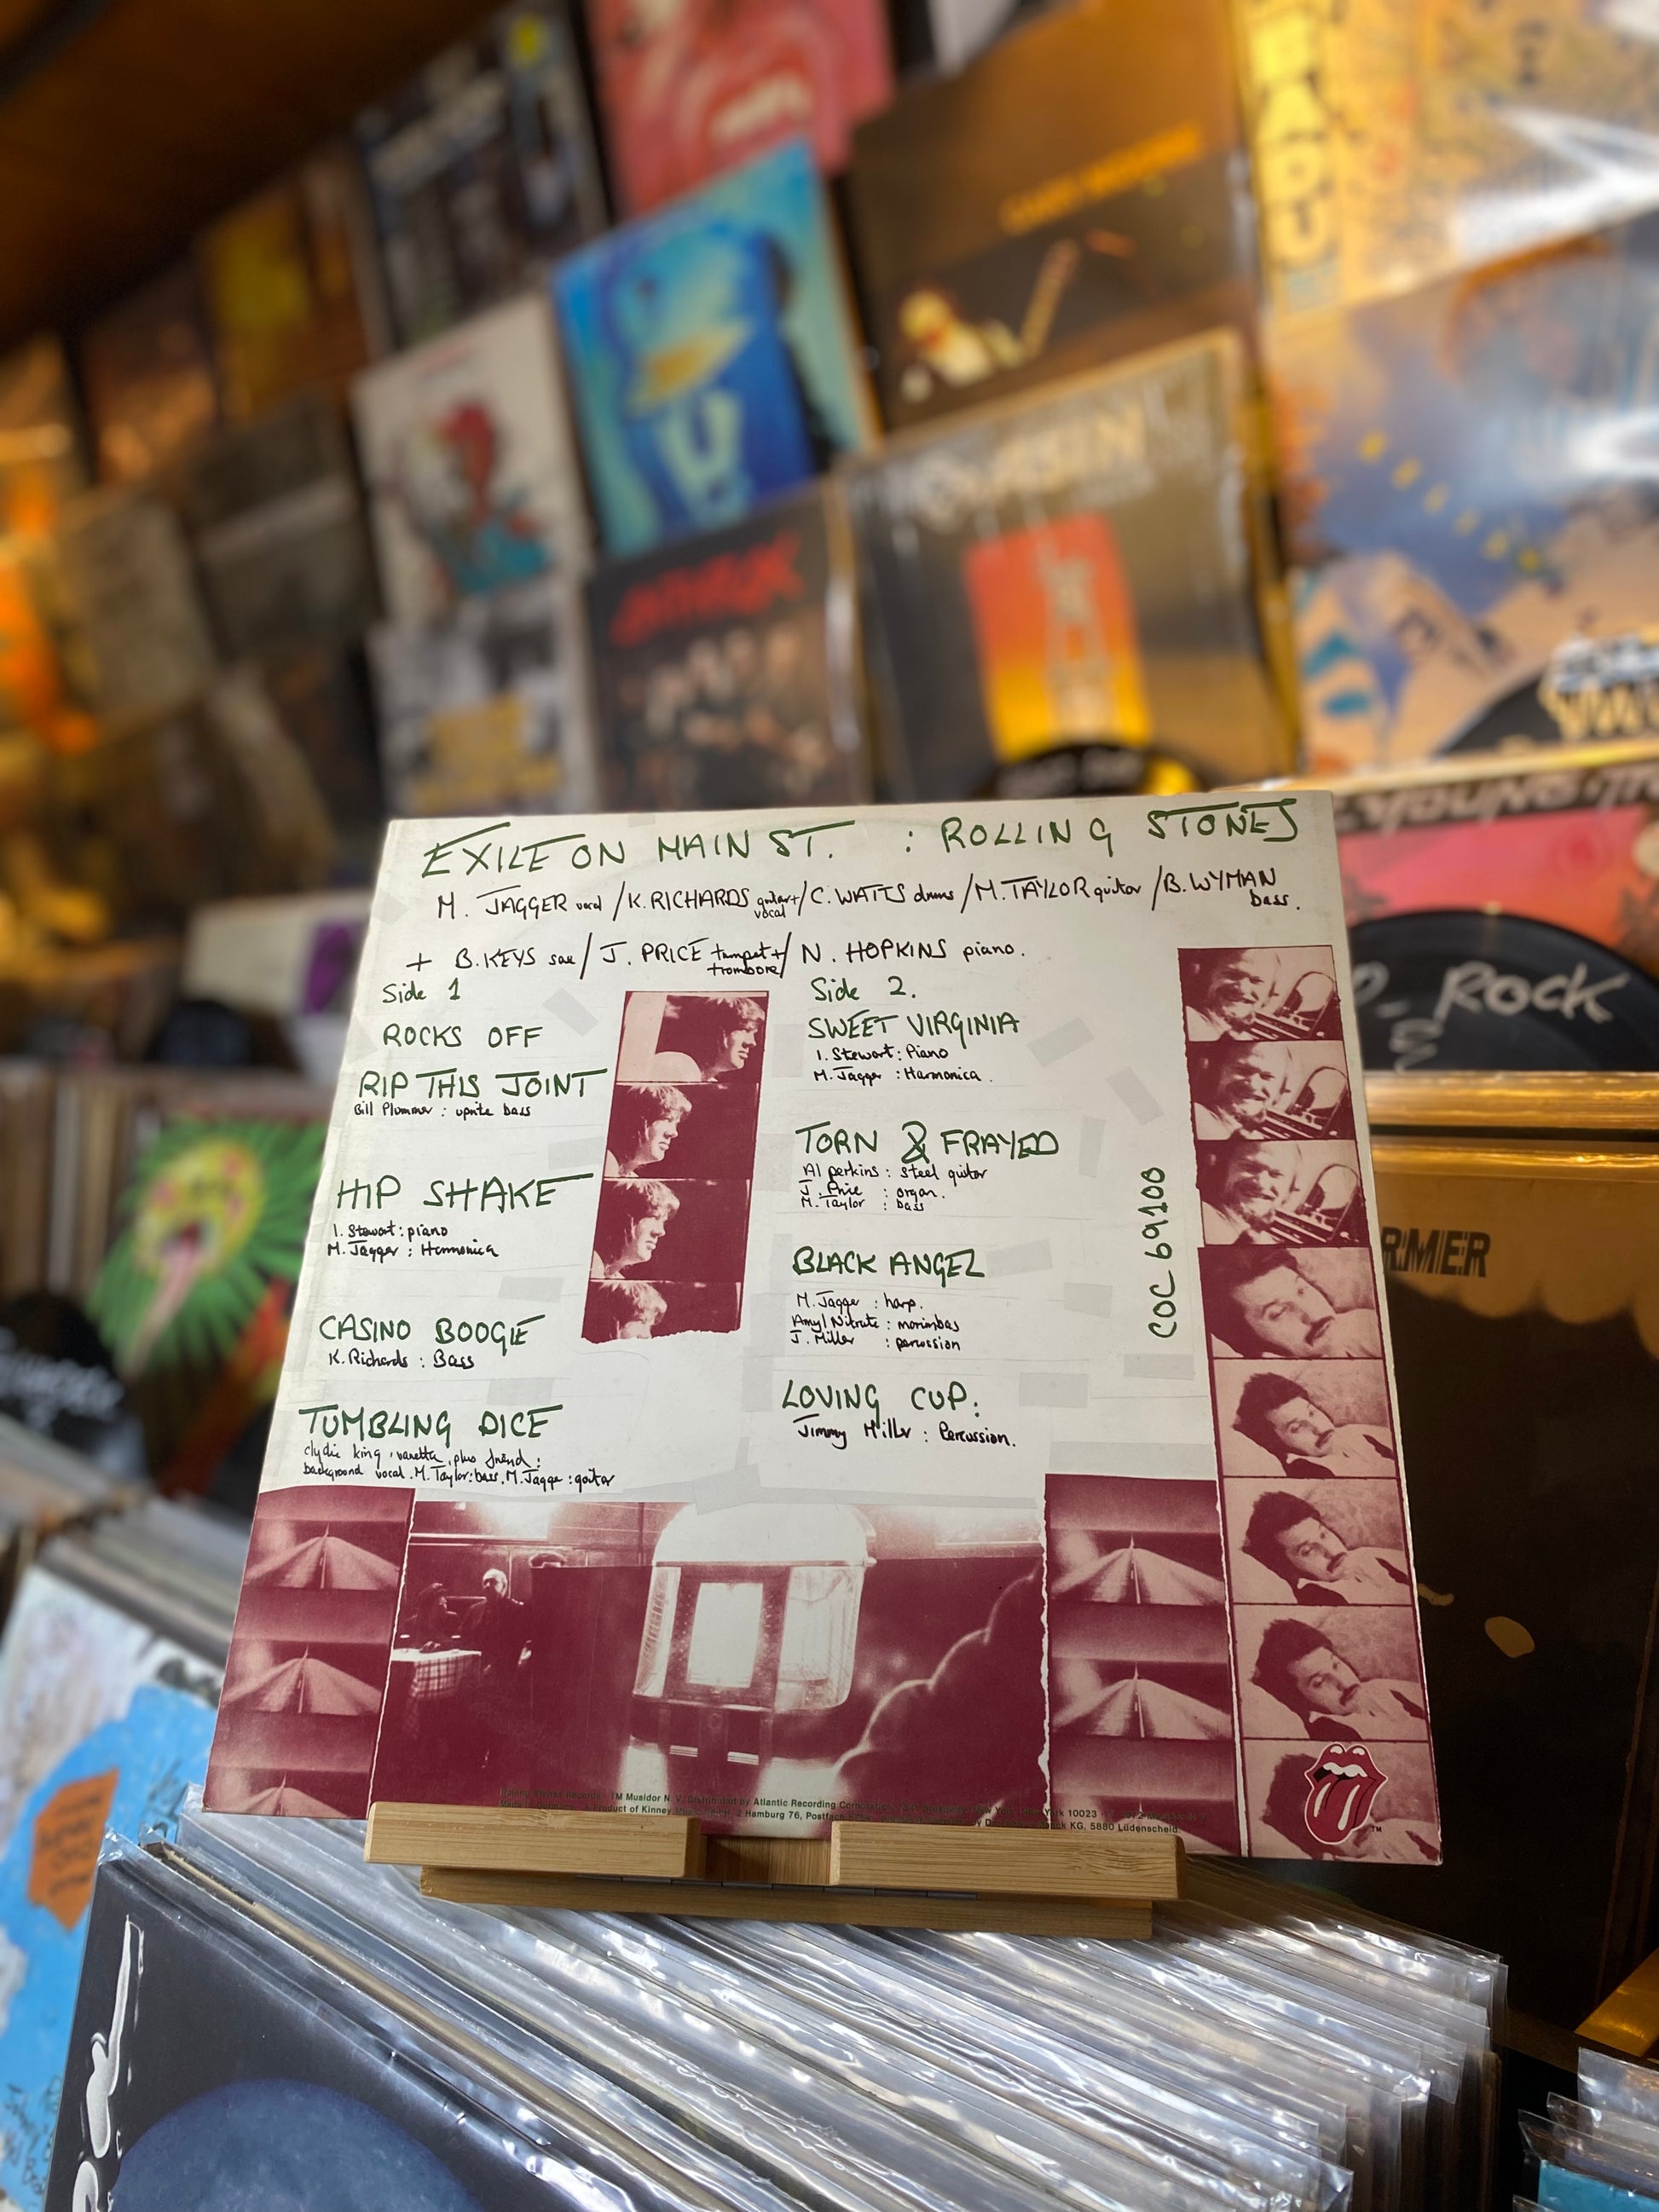 EXILE ON MAIN ST. : ROLLING STONES
M. JAGGER vocal / K. RICHARDS guitar + vocal / C. WATTS drums / M. TAYLOR guitar / B. WYMAN bass.
+ B. KEYS sax / J. PRICE trumpet + trombone / N. HOPKINS piano.
Side 1
ROCKS OFF
RIP THIS JOINT
Bill Plummer : uprite bass
HIP SHAKE
I. Stewart : piano
M. Jagger : Harmonica
CASINO BOOGIE
K. Richards : Bass
TUMBLING DICE
clydie king, vanetta, plus friend :
background vocal. M. Taylor : bass, M. Jagger : guitar
Side 2.
SWEET VIRGINIA
I. Stewart : Piano
M. Jagger : Harmonica.
TORN & FRAYED
Al perkins : steel guitar
J. Price : organ.
M. Taylor : bass
BLACK ANGEL
M. Jagger : harp.
Amyl Nitrate : marimbas
J. Miller : percussion
LOVING CUP :
Jimmy Miller : Percussion.
COC 69100
Rolling Stones Records, TM Musidor N.V. Distributed by Atlantic Recording Corporation, New York 10023
Product of Kinney 2 Hamburg 76, Postfach KG, 5880 Lüdenscheid.
TM
ROCK
RMER
YOUNG